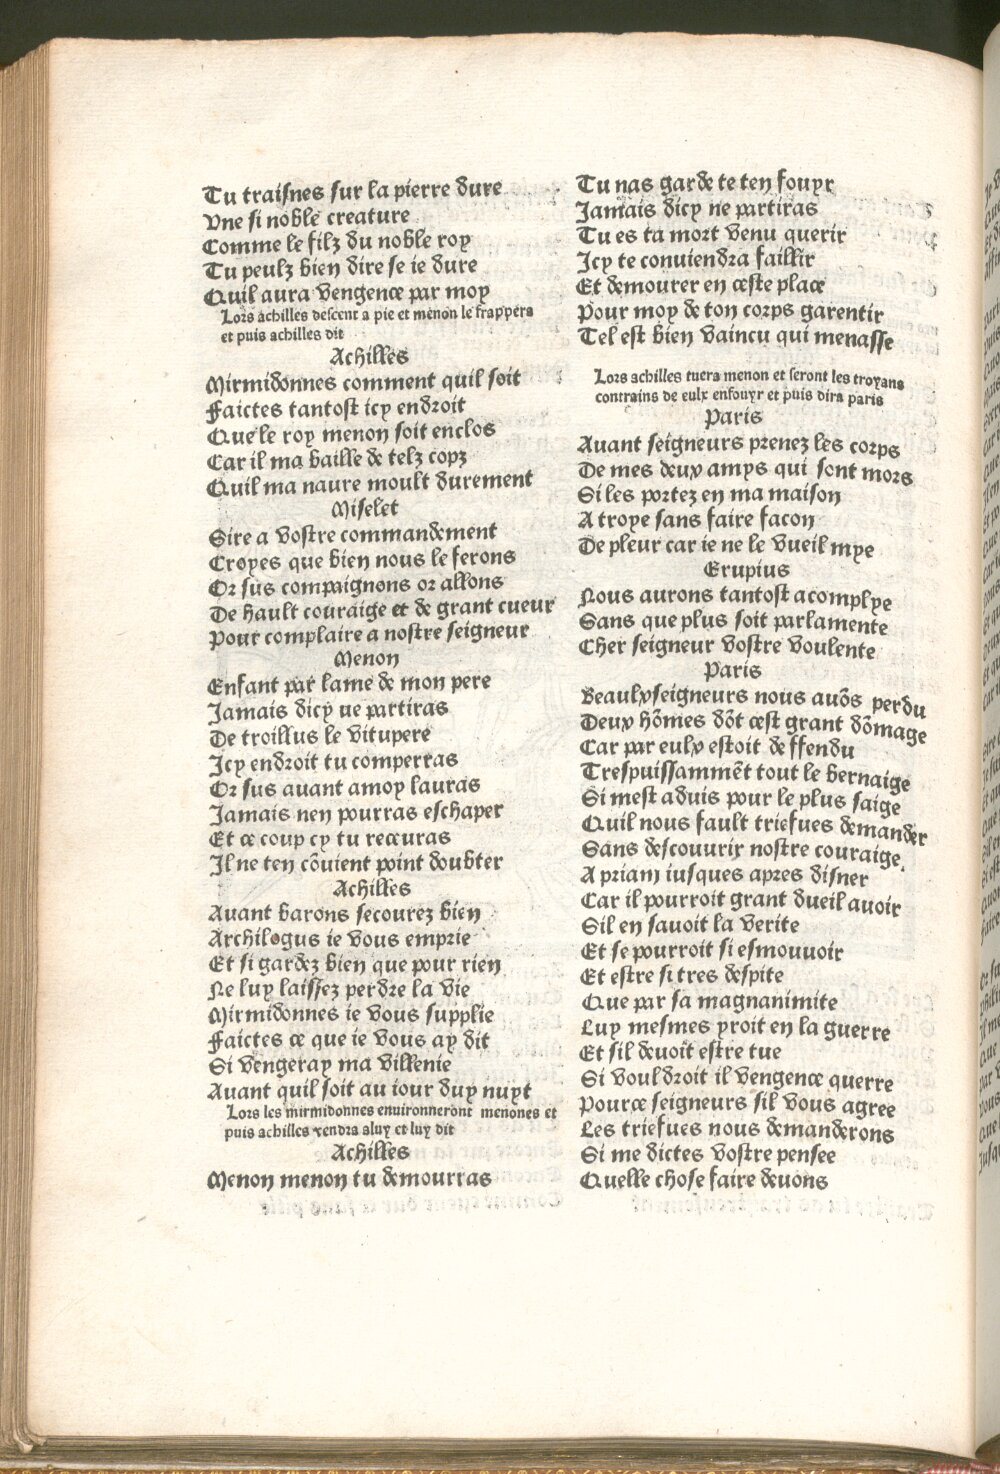 Tu traisnes sur la pierre dure
Vne si noble creature
Comme le filz du noble roy
Tu peulz bien dire se ie dure
Quil aura vengence par moy
Lors achilles descent a pie et menon le frappera
et puis achilles dit
Achilles
Mirmidonnes comment quil soit
Faictes tantost icy endroit
Que le roy menon soit enclos
Car il ma baille de telz copz
Quil ma naure moult durement
Miselet
Sire a vostre commandement
Croyes que bien nous le ferons
Or sus compaignons or allons
De hault couraige et de grant cueur
Pour complaire a nostre seigneur
Menon
Enfant par lame de mon pere
Jamais dicy ne partiras
De troillus le vitupere
Icy endroit tu comperras
Or sus auant a moy lauras
Jamais nen pourras eschaper
Et ce coup cy tu receuras
Il ne ten cõuient point doubter
Achilles
Auant barons secourez bien
Archilogus ie vous emprie
Et si gardez bien que pour rien
Ne luy laissez perdre la vie
Mirmidonnes ie vous supplie
Faictes ce que ie vous ay dit
Si vengeray ma villenie
Auant quil soit au iour duy nuyt
Lors les mirmidonnes enuironneront menones et
puis achilles vendra a luy et luy dit
Achilles
Menon menon tu demourras
Tu nas garde te ten fouyr
Jamais dicy ne partiras
Tu es ta mort venu querir
Icy te conuiendra faillir
Et demourer en ceste place
Pour moy de ton corps garentir
Tel est bien vaincu qui menasse
Lors achilles tuera menon et seront les troyans
contrains de eulx enfouyr et puis dira paris
Paris
Auant seigneurs prenez les corps
De mes deux amys qui sont mors
Si les portez en ma maison
A troye sans faire facon
De pleur car ie ne le vueil mye
Erupius
Nous aurons tantost acomplye
Sans que plus soit parlamente
Cher seigneur vostre voulente
Paris
Beaulx seigneurs nous auõs perdu
Deux hõmes dõt cest grant dõmage
Car par eulx estoit deffendu
Trespuissammẽt tout le bernaige
Si mest aduis pour le plus saige
Quil nous fault triefues demander
Sans descouurir nostre couraige.
A priam iusques apres disner
Car il pourroit grant dueil auoir
Sil en sauoit la verite
Et se pourroit si esmouuoir
Et estre si tres despite
Que par sa magnanimite
Luy mesmes yroit en la guerre
Et sil deuoit estre tue
Si vouldroit il vengence querre
Pource seigneurs sil vous agree
Les triefues nous demanderons
Si me dictes vostre pensee
Quelle chose faire deuons